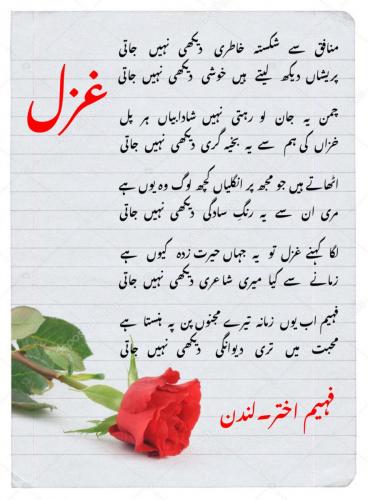 غزل
منافق سے شکستہ خاطری دیکھی نہیں جاتی
پریشاں دیکھ لیتے ہیں خوشی دیکھی نہیں جاتی
چمن یہ جان لو رہتی نہیں شادابیاں ہر پل
خزاں کی ہم سے یہ بخیہ گری دیکھی نہیں جاتی
اٹھاتے ہیں جو مجھ پر انگلیاں کچھ لوگ وہ یوں ہے
مری ان سے یہ رنگِ سادگی دیکھی نہیں جاتی
لگا کہنے غزل تو یہ جہاں حیرت زدہ کیوں ہے
زمانے سے کیا میری شاعری دیکھی نہیں جاتی
فہیم اب یوں زمانہ تیرے مجنوں پن پہ ہنستا ہے
محبت میں تری دیوانگی دیکھی نہیں جاتی
فہیم اختر۔لندن